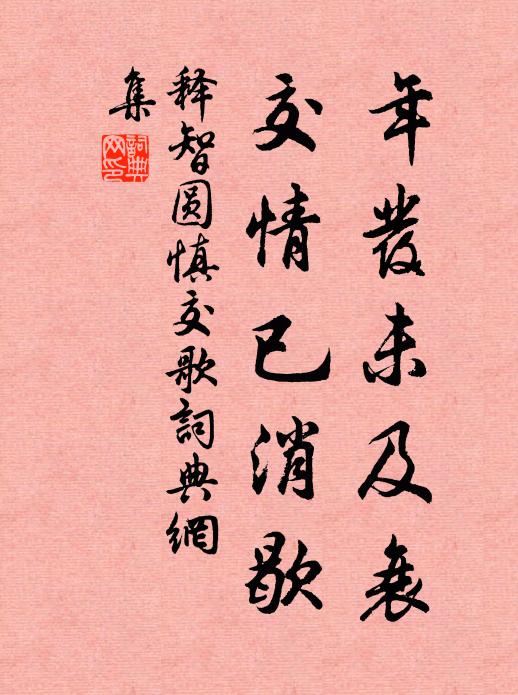 年發未及衰
交情已消歇
释智圆慎交歌詞典網
集
詞典网印